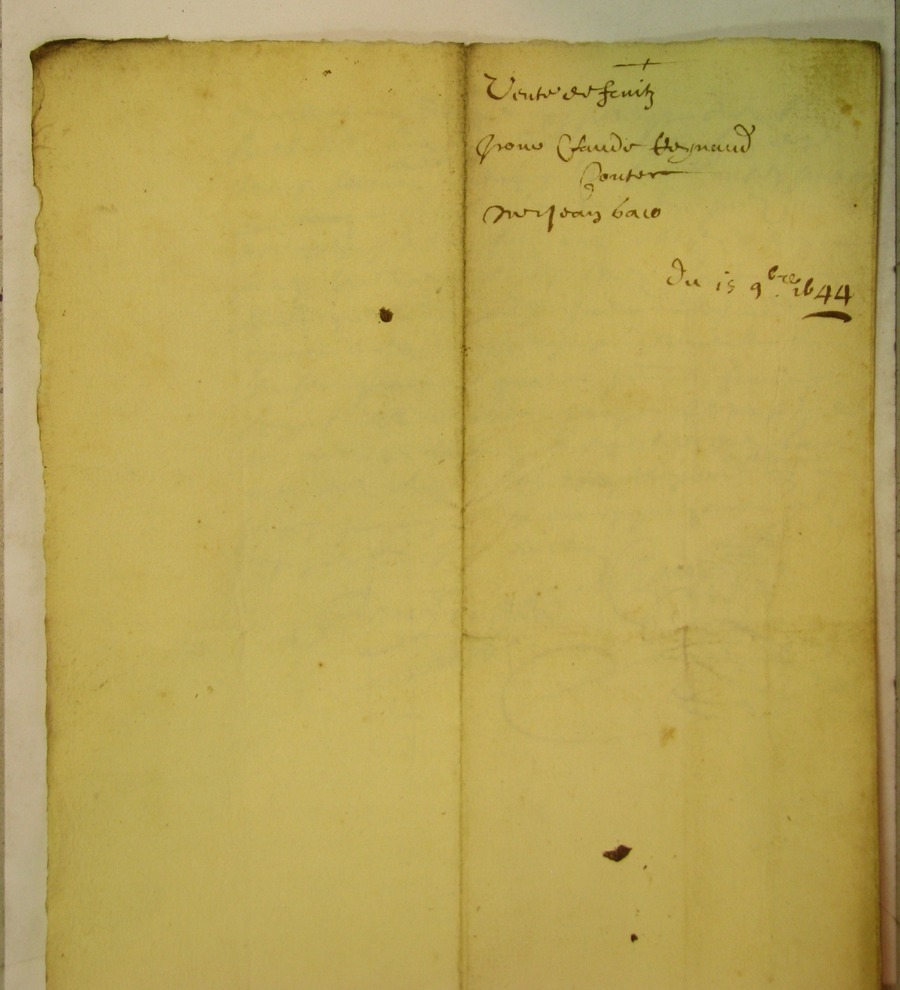 Vente de fruitz
pour Claude Reynaud
Contre
Me Jean baco
Du 15 9bre 1644